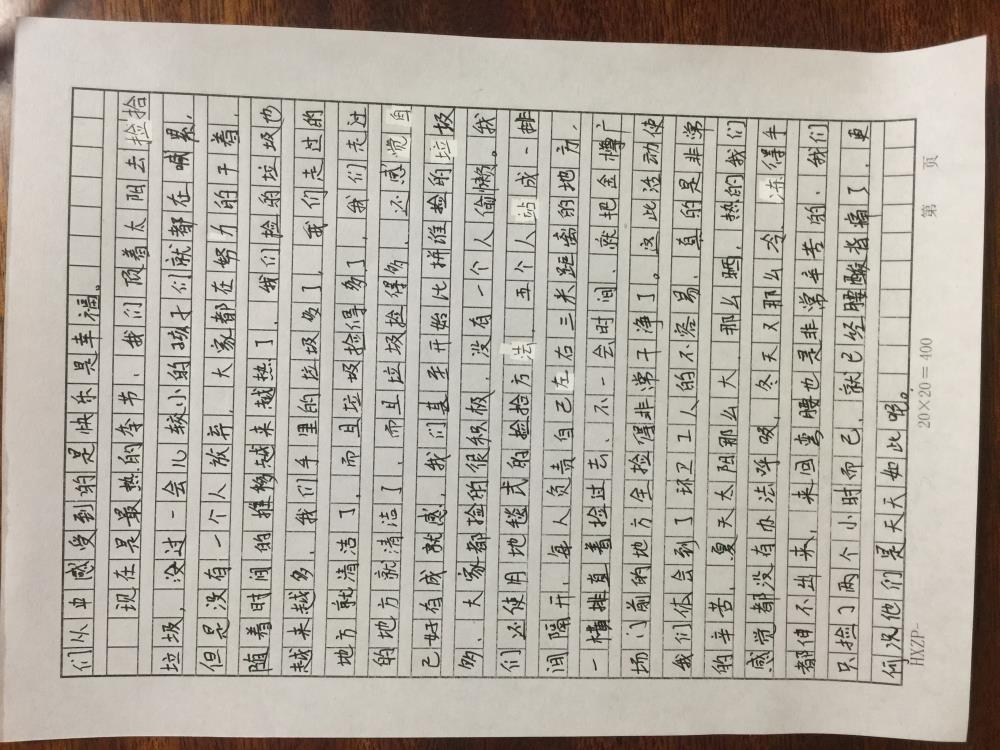 们从中感受到的是快乐是幸福。
现在是最热的季节，我们顶着太阳去捡拾
垃圾，没过一会儿较小的孩子们就都在喊累，
但是没有一个人放弃，大家都在努力的干着，
随着时间的推移越来越热了，我们捡的垃圾也
越来越多，我们手里的垃圾多了，我们走过的
地方就清洁了，而且垃圾捡得多了，我们走过
的地方就清洁了，而且垃圾捡得多，还感觉自
己好有成就感，我们甚至开始比拼谁捡的垃圾
多，大家都捡的很积极，没有一个人偷懒。我
们还使用地毯式的捡拾方法，五个人站成一排
间隔开，每人负责自己左右三米距离的地方，
一横排直着捡过去，不一会时间，就把金樽广
场门前的地方全捡得非常干净了。这此活动使
我们体会到了环卫工人的不容易，真的是非常
的辛苦，夏天太阳那么大，那么晒，热的我们
感觉都没有办法呼吸，冬天又那么冷，冻得手
都伸不出来，来回弯腰也是非常辛苦的，我们
只捡了两个小时而已，就已经腰酸背痛了，更
何况他们是天天如此呢。
HXZP-
20×20＝400
第 页